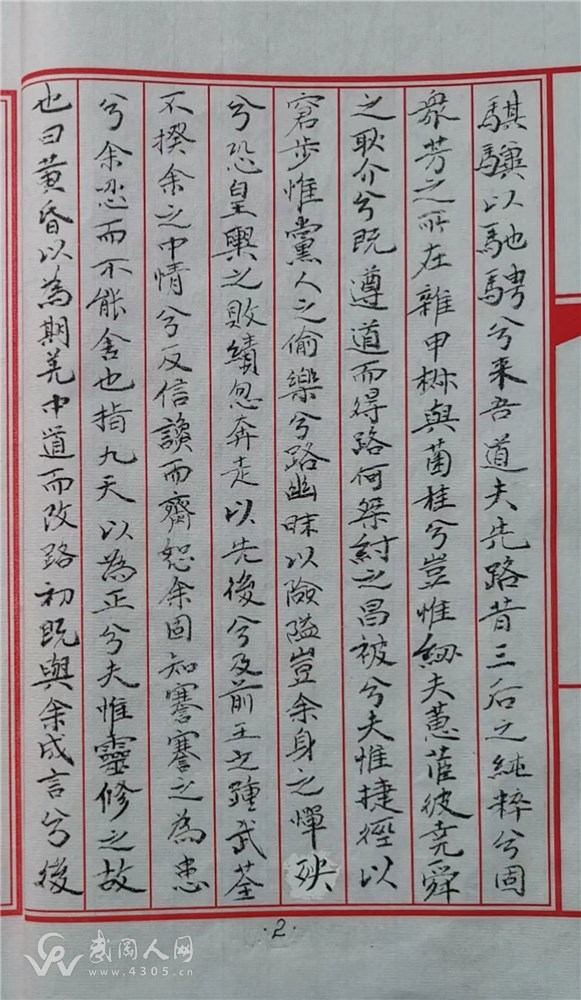 騏驥以馳騁兮来吾道夫先路昔三后之純粹兮固
衆芳之所在雜申椒與菌桂兮豈惟紉夫蕙茝彼堯舜
之耿介兮既遵道而得路何桀紂之昌被兮夫惟捷徑以
窘步惟黨人之偷樂兮路幽昧以險隘豈余身之憚殃
兮恐皇輿之敗績忽奔走以先後兮及前王之踵武荃
不揆余之中情兮反信讒而齊怒余固知謇謇之為患
兮余忍而不能舍也指九天以為正兮夫惟靈修之故
也曰黄昏以為期羌中道而改路初既與余成言兮後
·2·
武冈人网
www.4305.cn